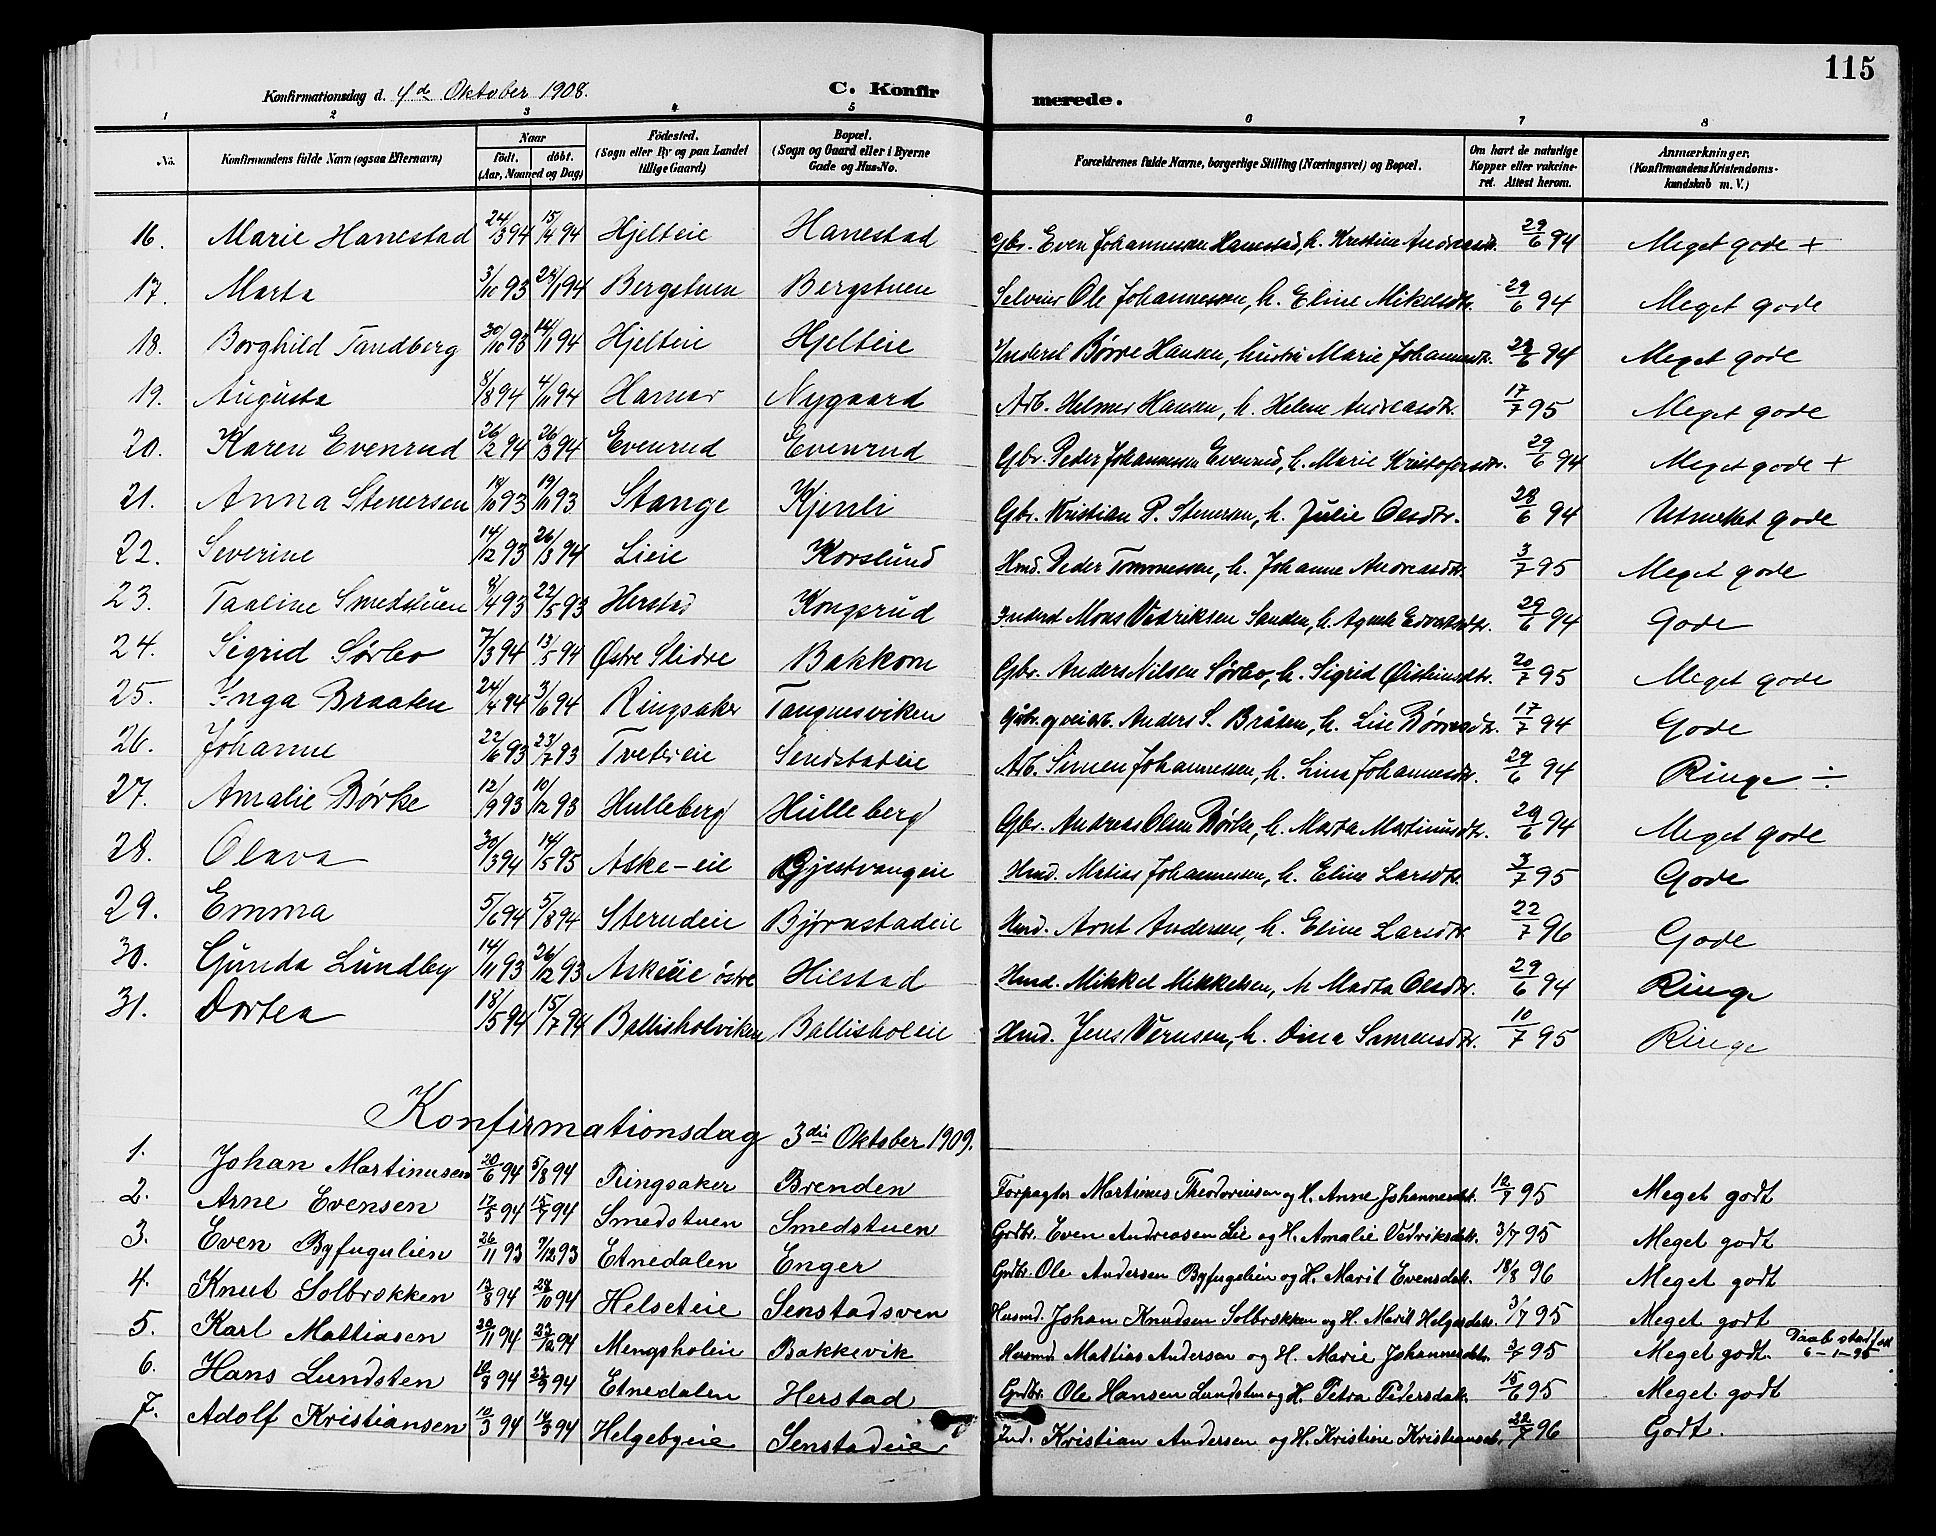 115
Konfirmationsdag d. 4de Oktober 1908. C. Konfirmerede.
1 2 3 4 5 6 7 8
No. Konfirmandens fulde Navn (ogsaa Efternavn) Naar født. døbt. (Aar, Maaned og Dag) Fødested. (Sogn eller By og paa Landet tillige Gaard) Bopæl. (Sogn og Gaard eller i Byerne Gade og Hus-No. Forældrenes fulde Navne, borgerlige Stilling (Næringsvei) og Bopæl. Om havt de naturlige Kopper eller vakcineret. Attest herom. Anmærkninger. (Konfirmandens Kristendomskundskab m. V.)
16. Marie Hanestad 24/3 94 15/4 94 Hjelteie Hanestad Gbr. Even Johannessen Hanestad, h. Kristine Andreasdtr. 29/6 94 Meget gode +
17. Marta 3/10 93 28/1 94 Bergstuen Bergstuen Selveier Ole Johannessen, h. Eline Mikelsdtr. 29/6 94 Meget gode
18. Borghild Tandberg 30/10 93 14/1 94 Hjelteie Hjelteie Inderst Børre Hansen, hustru Marie Johannesdtr. 29/6 94 Meget gode
19. Augusta 8/8 94 4/11 94 Hamar Nygaard Arb. Helmer Hansen, h. Helene Andreasdtr. 17/7 95 Meget gode
20. Karen Evenrud 26/2 94 26/3 94 Evenrud Evenrud Gbr. Peder Johannessen Evenrud, h. Marie Kristofersdtr. 29/6 94 Meget gode +
21. Anna Stenersen 19/10 93 19/11 93 Stange Kjenli Gbr. Kristian P. Stenersen, h. Julie Olsdtr. 28/6 94 Utmerket gode
22. Severine 14/12 93 26/3 94 Lieie Korslund Hmd. Peder Tommessen, h. Johanne Andreasdtr. 3/7 95 Meget gode
23. Taaline Smedstuen 8/4 93 22/5 93 Herstad Kongsrud Inderst Mons Vedriksen Sanden, h. Agnete Edvardsdtr. 29/6 94 Gode
24. Sigrid Sørbo 7/3 94 13/5 94 Østre Slidre Bakkom Gbr. Anders Nilsen Sørbo, h. Sigrid Øisteinsdtr. 20/7 95 Meget gode
25. Inga Braaten 24/4 94 3/6 94 Ringsaker Tangnesviken Gbr. og veiarb. Anders S. Bråten, h. Lise Børresdtr. 17/7 94 Gode
26. Johanne 22/6 93 23/7 93 Tveterie Sendstadeie Arb. Simen Johannessen, h. Lina Johannesdtr. 29/6 94 Ringe ÷
27. Amalie Børke 12/9 93 10/12 93 Hulleberg Hulleberg Gbr. Andreas Olsen Børke, h. Marta Martinusdtr. 29/6 94 Meget gode
28. Olava 30/3 94 14/5 95 Aske-eie Gjestvangeie Hmd. Matias Johannessen, h. Eline Larsdtr. 3/7 95 Gode
29. Emma 5/6 94 5/8 94 Sterudeie Bjørnstadeie Hmd. Arnt Andersen, h. Eline Larsdtr. 22/7 96 Gode
30. Gunda Lundby 14/11 93 26/12 93 Askeeie østre Hielstad Hmd. Mikkel Mikkelsen, h Marta Olesdtr. 29/6 94 Ringe
31. Dortea 18/5 94 15/7 94 Ballisholviken Ballisholeie Hmd. Jens Vernsen, h. Dina Simensdtr. 10/7 95 Ringe
Konfirmationsdag 3die Oktober 1909.
1. Johan Martinusen 20/6 94 5/8 94 Ringsaker Brenden Forpagter Martinus Theodorinsen og H. Anne Johannesdtr. 12/7 95 Meget godt
2. Arne Evensen 17/5 94 15/7 94 Smedstuen Smedstuen Grdbr. Even Andreasen Lie og H. Amalie Vedriksdtr. 3/7 95 Meget godt
3. Even Byfuglien 26/11 93 7/12 93 Etnedalen Enger Grdbr. Ole Andersen Byfuglien og H. Marit Evensdtr. 18/8 96 Meget godt
4. Knut Solbrækken 13/8 94 28/10 94 Helseteie Senstadsven Husmd. Johan Knudsen Solbrækken og H. Marit Helgesdtr. 3/7 95 Meget godt
5. Karl Mattiasen 20/11 94 23/12 94 Mengsholeie Bakkevik Husmd. Mattias Andersen og H. Marie Johannesdtr. 3/7 95 Meget godt. Daab stadfæst 6-1-95
6. Hans Lundsten 10/8 94 23/9 94 Etnedalen Herstad Grdbr. Ole Hansen Lundsten og H. Petra Pedersdatr. 15/6 95 Meget godt
7. Adolf Kristiansen 10/3 94 14/3 94 Helgebyeie Senstadeie Ind. Kristian Andersen og H. Kristine Kristiansdtr. 22/7 96 Godt.